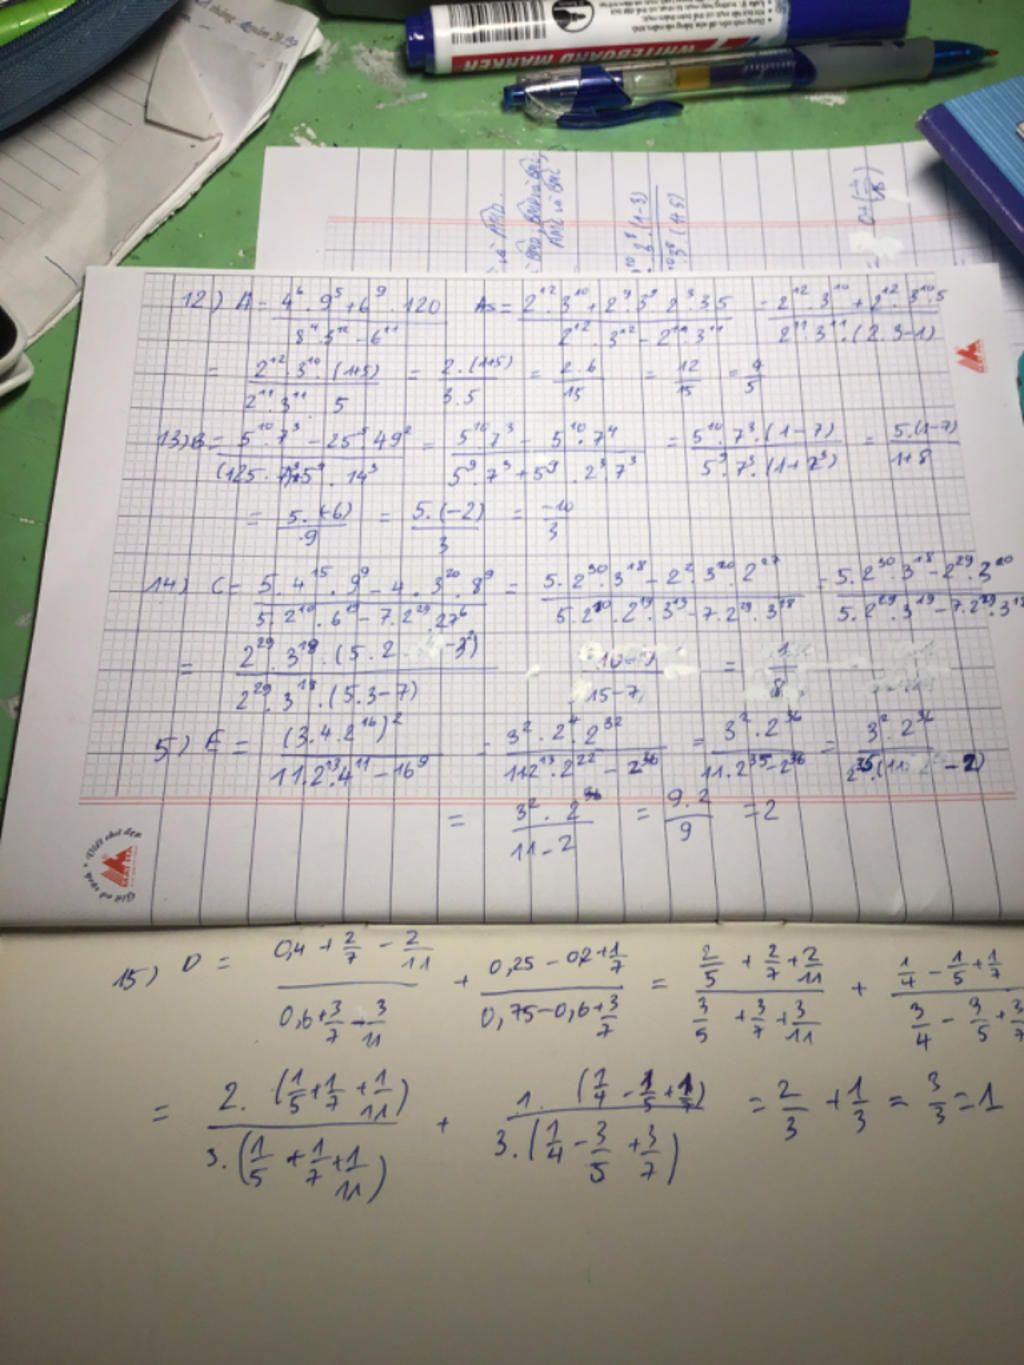 WHITEBOARD MARKER
12) A = 4^6 . 9^5 + 6^9 . 120 / 8^4 . 3^12 - 6^11   A5 = 2^12 . 3^10 + 2^9 . 3^9 . 2^3 . 3.5 / 2^12 . 3^12 - 2^11 . 3^11 = 2^12 . 3^10 + 2^12 . 3^10 . 5 / 2^11 . 3^11 . (2.3-1)
= 2^12 . 3^10 . (1+5) / 2^11 . 3^11 . 5 = 2.(1+5) / 3.5 = 2.6 / 15 = 12/15 = 4/5
13) B = 5^10 . 7^3 - 25^5 . 49^2 / (125.7)^3 + 5^9 . 14^3 = 5^10 7^3 - 5^10 . 7^4 / 5^9 . 7^3 + 5^9 . 2^3 7^3 = 5^10 . 7^3 . (1-7) / 5^9 . 7^3 . (1+2^3) = 5.(1-7) / 1+8
= 5.(-6) / 9 = 5.(-2) / 3 = -10/3
14) C = 5.4^15 . 9^9 - 4.3^20 . 8^9 / 5.2^10 . 6^19 - 7.2^29 . 27^6 = 5.2^30 . 3^18 - 2^2 . 3^20 . 2^27 / 5.2^10 . 2^19 . 3^19 - 7.2^29 . 3^18 = 5.2^30 . 3^18 - 2^29 . 3^20 / 5.2^29 . 3^19 - 7.2^29 . 3^18
= 2^29 . 3^18 . (5.2 - 3^2) / 2^29 . 3^18 . (5.3-7)   10-9 / 15-7 = 1/8
5) E = (3.4.2^16)^2 / 11.2^13 . 4^11 - 16^9 = 3^2 . 2^4 . 2^32 / 11 2^13 . 2^22 - 2^36 = 3^2 . 2^36 / 11.2^35 - 2^36 = 3^2 . 2^36 / 2^35 . (11 - 2)
= 3^2 . 2^36 / 11-2 = 9.2 / 9 = 2
15) D = 0,4 + 2/7 - 2/11 / 0,6 + 3/7 - 3/11 + 0,25 - 0,2 + 1/7 / 0,75 - 0,6 + 3/7 = 2/5 + 2/7 + 2/11 / 3/5 + 3/7 + 3/11 + 1/4 - 1/5 + 1/7 / 3/4 - 3/5 + 3/7
= 2.(1/5 + 1/7 + 1/11) / 3.(1/5 + 1/7 + 1/11) + 1.(1/4 - 1/5 + 1/7) / 3.(1/4 - 3/5 + 3/7) = 2/3 + 1/3 = 3/3 = 1